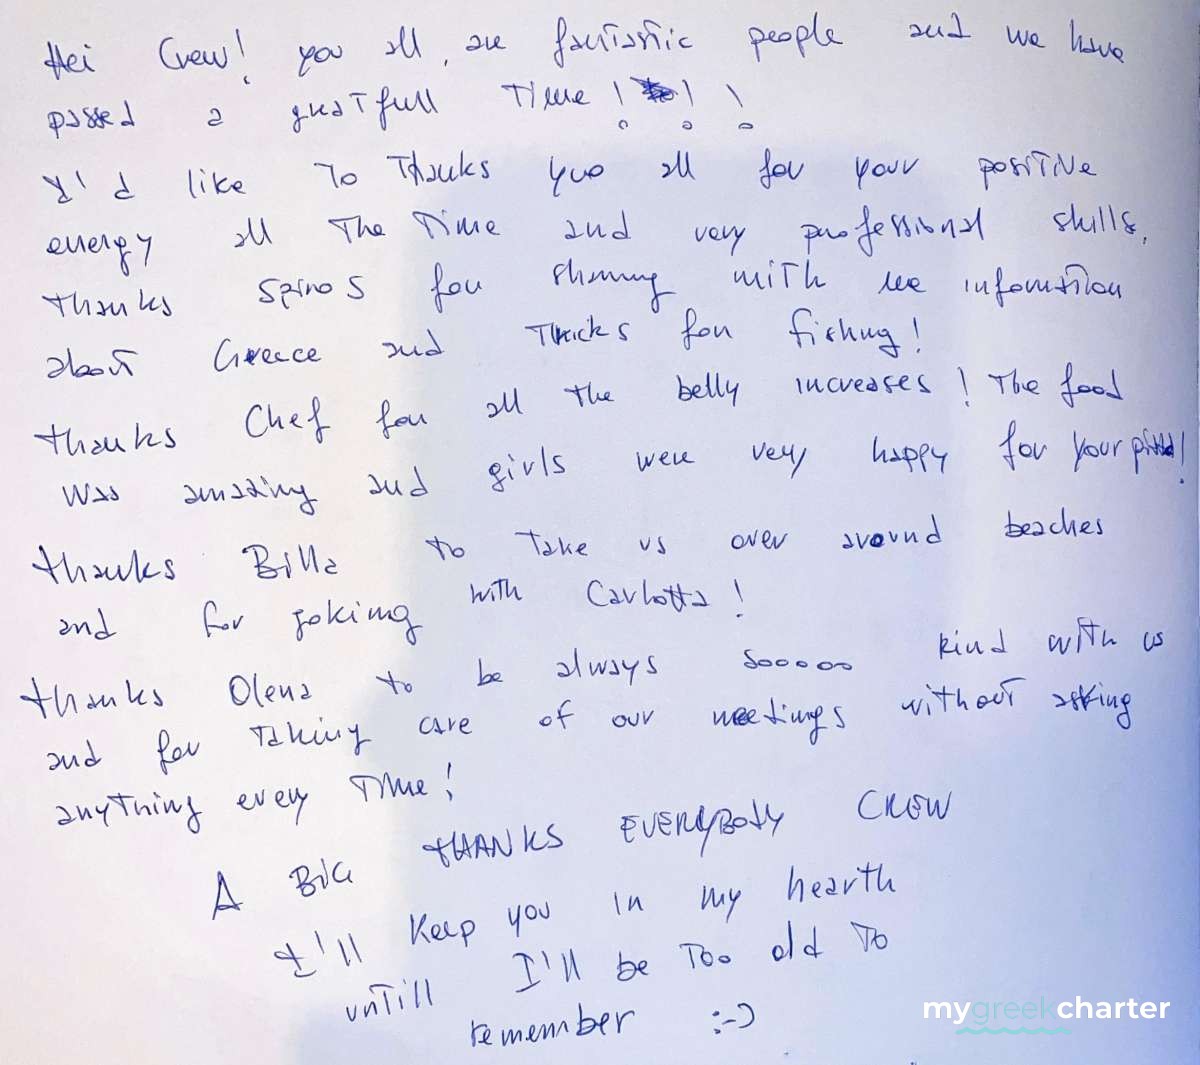 Hei Crew! you all are fantastic people and we have
passed a greatfull time!!!
I'd like to thanks you all for your positive
energy all the time and very professional skills.
thanks Spiros for sharing with me information
about Greece and tricks for fishing!
thanks Chef for all the belly increases! The food
was amazing and girls were very happy for your pitta!
thanks Billa to take us over around beaches
and for joking with Carlotta!
thanks Olena to be always sooooo kind with us
and for taking care of our meetings without asking
anything every time!
A BIG THANKS EVERYBODY CREW
I'll keep you in my hearth
untill I'll be too old to
remember :-)
mygreekcharter